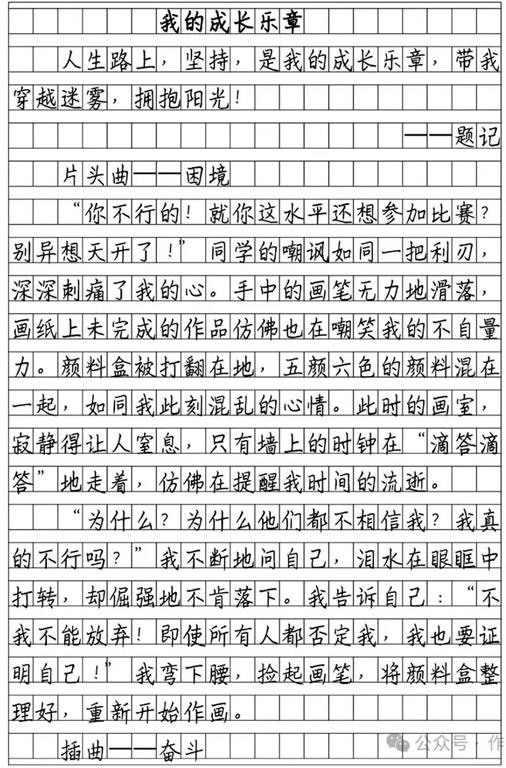 我的成长乐章
人生路上，坚持，是我的成长乐章，带我
穿越迷雾，拥抱阳光！
——题记
片头曲——困境
“你不行的！就你这水平还想参加比赛？
别异想天开了！”同学的嘲讽如同一把利刃，
深深刺痛了我的心。手中的画笔无力地滑落，
画纸上未完成的作品仿佛也在嘲笑我的不自量
力。颜料盒被打翻在地，五颜六色的颜料混在
一起，如同我此刻混乱的心情。此时的画室，
寂静得让人窒息，只有墙上的时钟在“滴答滴
答”地走着，仿佛在提醒我时间的流逝。
“为什么？为什么他们都不相信我？我真
的不行吗？”我不断地问自己，泪水在眼眶中
打转，却倔强地不肯落下。我告诉自己：“不
我不能放弃！即使所有人都否定我，我也要证
明自己！”我弯下腰，捡起画笔，将颜料盒整
理好，重新开始作画。
插曲——奋斗
公众号·作